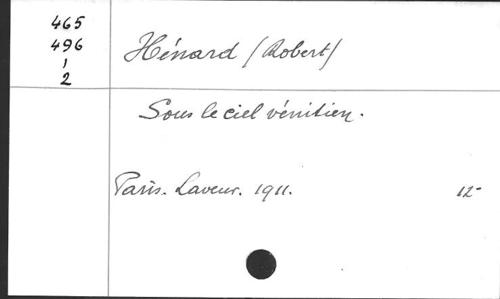 465
496
1
2
Hénard /Robert/
Sous le ciel vénitien.
Paris. Laveur. 1911. 12-